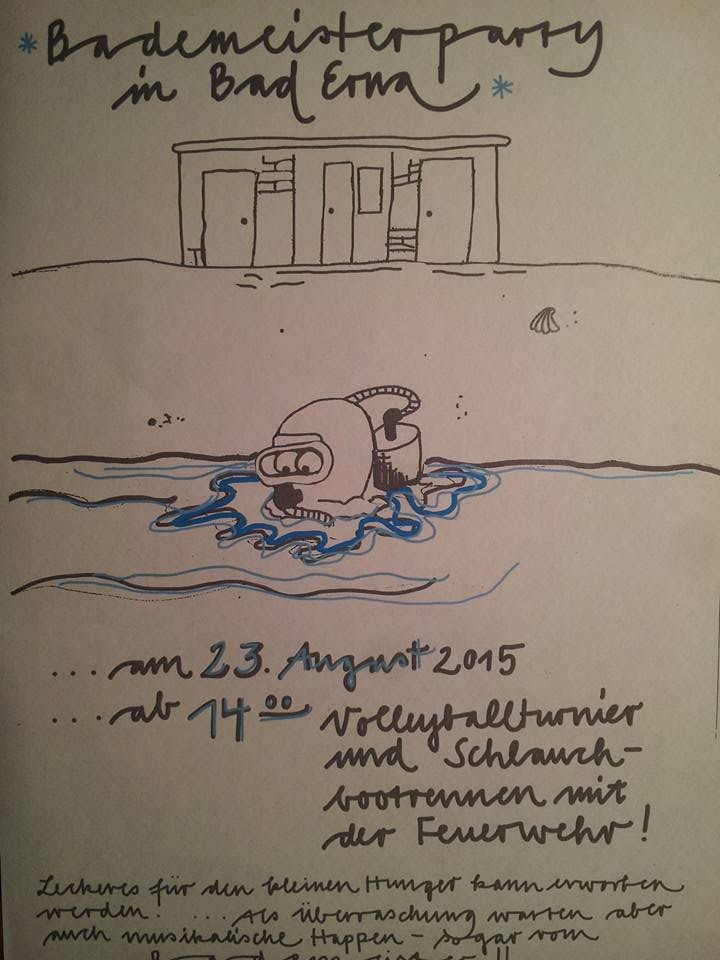 *Bademeisterparty
in Bad Erna*
... am 23. August 2015
... ab 14⁰⁰ Volleyballturnier
und Schlauch-
bootrennen mit
der Feuerwehr!
Leckeres für den kleinen Hunger kann erworben
werden! ... Als Überraschung warten aber
auch musikalische Happen - sogar vom